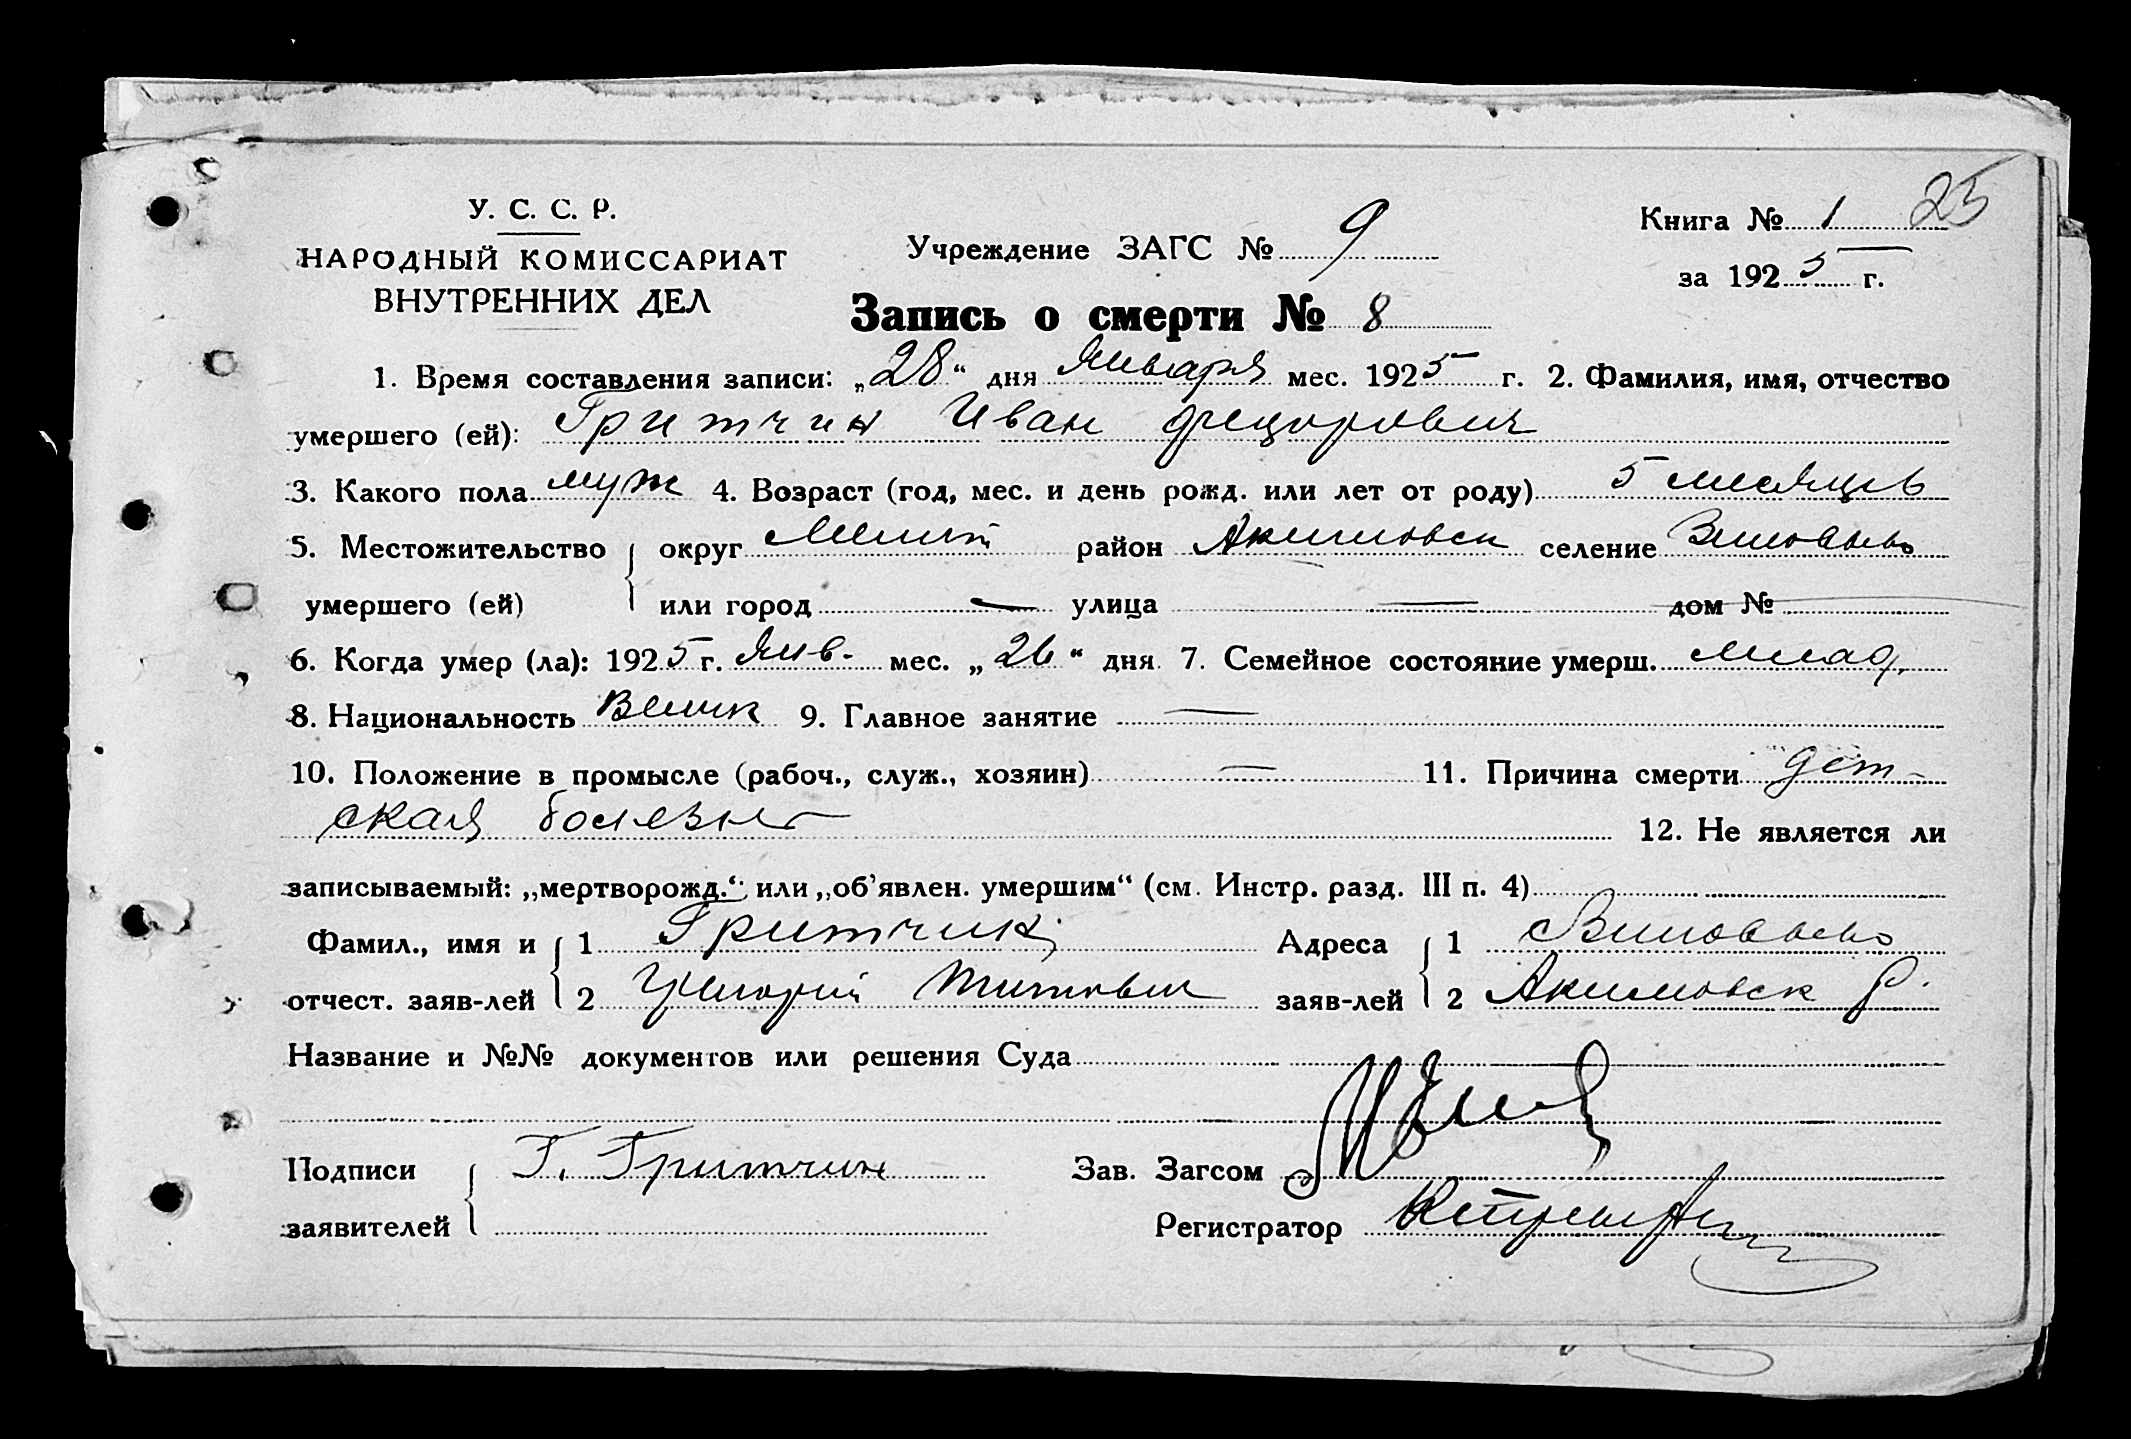 У. С. С. Р.
НАРОДНЫЙ КОМИССАРИАТ
ВНУТРЕННИХ ДЕЛ
Учреждение ЗАГС № 9
Книга № 1 25
за 1925 г.
Запись о смерти № 8
1. Время составления записи: „28“ дня Января мес. 1925 г. 2. Фамилия, имя, отчество
умершего (ей): Гритчин Иван Федорович
3. Какого пола муж 4. Возраст (год, мес. и день рожд. или лет от роду) 5 месяцев
5. Местожительство округ Мелит район Акимовск селение
умершего (ей) или город — улица — дом №
6. Когда умер (ла): 1925 г. Янв. мес. „26“ дня 7. Семейное состояние умерш. млад.
8. Национальность Велик 9. Главное занятие —
10. Положение в промысле (рабоч., служ., хозяин) — 11. Причина смерти дет-
ская болезнь
12. Не является ли
записываемый: „мертворожд.“ или „об'явлен. умершим“ (см. Инстр. разд. III п. 4)
Фамил., имя и 1 Гритчин Адреса 1
отчест. заяв-лей 2 Григорий Титович заяв-лей 2 Акимовск р.
Название и №№ документов или решения Суда
Подписи Г. Гритчин Зав. Загсом
заявителей Регистратор